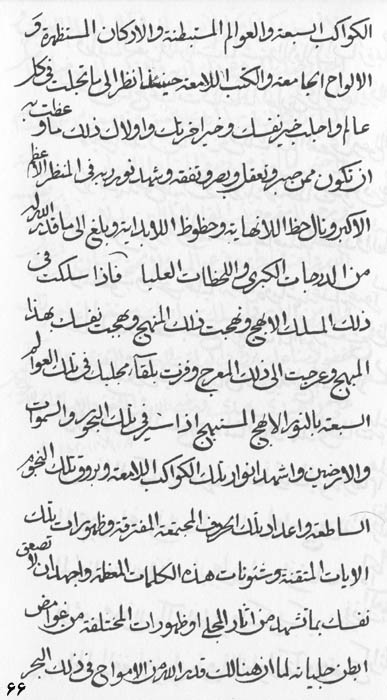 الكواكب السبعة والعوالم المستبطنة والاركان المستظهرة و
الالواح الجامعة والكتب اللامعة حينئذ انظر الى ما تجلت فى كل
عالم واجلب خير نفسك وخير اخرتك واولاك ذلك ما وعظت به
ان تكون ممن صبر وتعقل وبصر وتفقه وشهد نور ربه فى المنظر الاعظم
الاكبر ونال حظ اللانهاية وحظوظ اللابداية وبلغ الى ما قدر الله له
من الدرجات الكبرى واللحظات العليا فاذا سلكت فى
ذلك المسلك الابهج ونهجت ذلك المنهج وبهجت نفسك بهذا
المبهج وعرجت الى ذلك المعرج وفزت بلقاء مجليك فى تلك العوالم
السبعة بالنور الابهج المستبهج اذا سر فى تلك البحور والسموات
والارضين واشهد انوار تلك الكواكب اللامعة وبروق تلك النجوم
الساطعة واعداد تلك الحروف المجتمعة المفترقة وظهورات تلك
الايات المتقنة وشئونات هذه الكلمات المعظمة واجهد ان لا تصعق
نفسك بما تشهد من اثار المجلى او ظهورات المختلفة من غوامض
ابطن لما ان هنالك قدر الله من الامواج فى ذلك البحر
۶۶